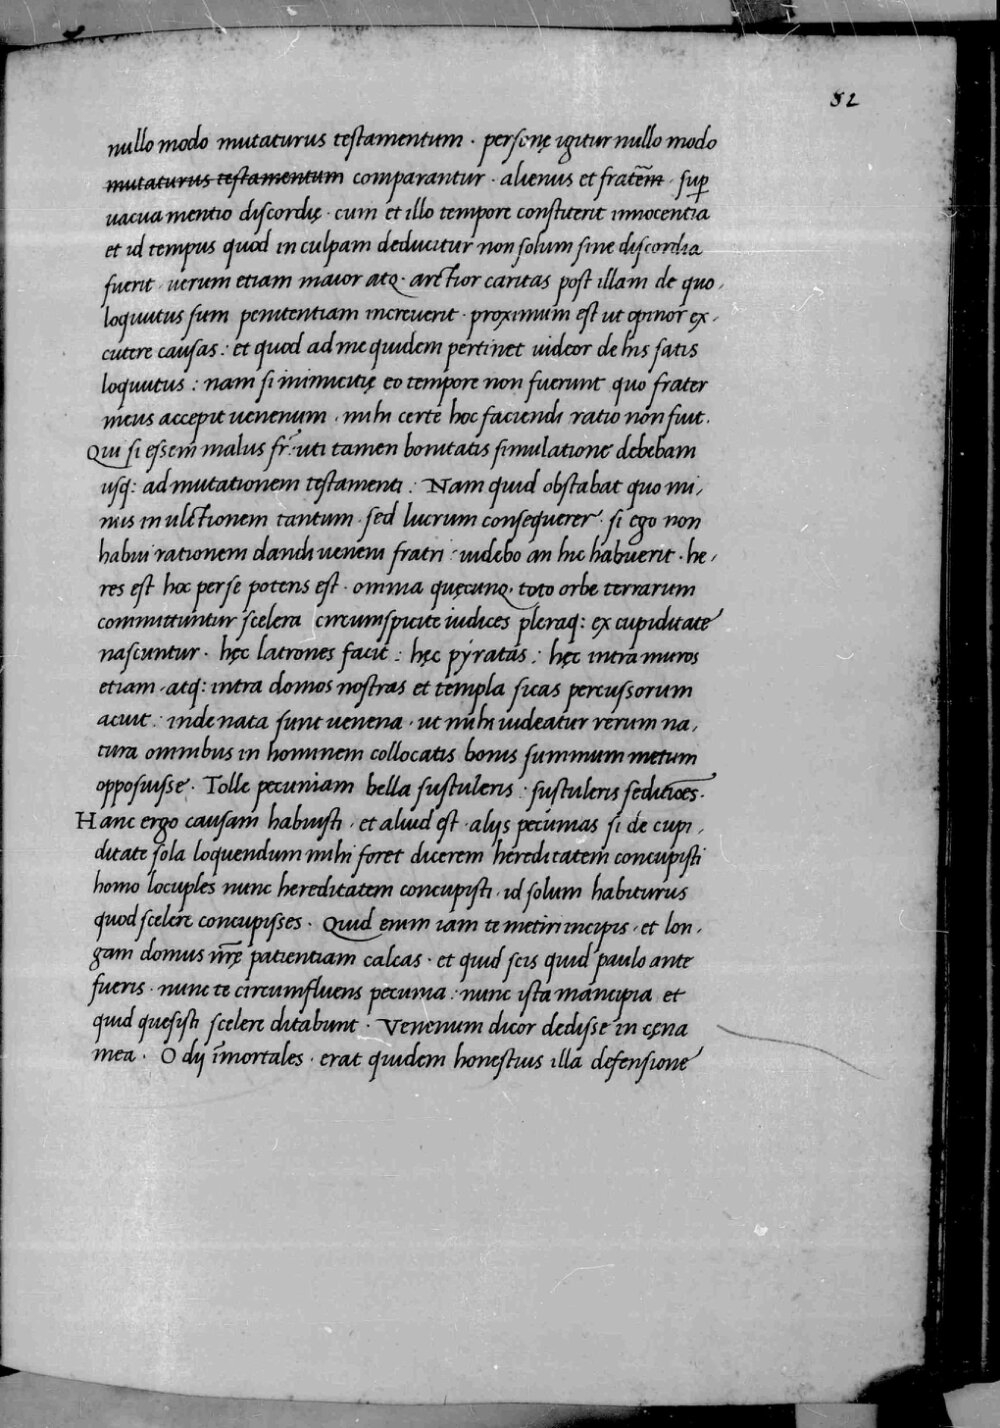 52
nullo modo mutaturus testamentum · personę igitur nullo modo
mutaturus testamentum comparantur · alienus et frat̄em · sup̱
uacua mentio discordię · cum et illo tempore constiterit innocentia
et id tempus quod in culpam deducitur non solum sine discordia
fuerit · uerum etiam maior atq · arctior caritas post illam de quo,
loquutus sum penitentiam increuerit · proximum est ut opinor ex,
cutere causas : et quod ad me quidem pertinet uideor de his satis
loquutus : nam si inimicitię eo tempore non fuerunt quo frater
meus accepit uenenum · mihi certe hoc faciendi ratio non fuit.
Qui si essem malus fr̄ : uti tamen bonitatis simulatione debebam
usq: ad mutationem testamenti : Nam quid obstabat quo mi,
nus in ultionem tantum · sed lucrum consequerer · si ego non
habui rationem dandi ueneni fratri : uidebo an hic habuerit · he,
res est hoc per se potens est · omnia quęcunq · toto orbe terrarum
committuntur scelera circumspicite iudices pleraq: ex cupiditate
nascuntur · hęc latrones facit : hęc pyratas : hęc intra muros
etiam · atq: intra domos nostras et templa sicas percussorum
acuit : inde nata sunt uenena · ut mihi uideatur rerum na,
tura omnibus in hominem collocatis bonis summum metum
opposuisse · Tolle pecuniam bella sustuleris : sustuleris seditiōes.
Hanc ergo causam habuisti · et aliud est · alijs pecunias si de cupi,
ditate sola loquendum mihi foret dicerem hereditatem concupisti
homo locuples nunc hereditatem concupisti · id solum habiturus
quod scelere concupisses · Quid enim iam te metiri incipis · et lon,
gam domus nr̄ę patientiam calcas · et quid scis quid paulo ante
fueris · nunc te circumfluens pecunia : nunc ista mancipia et
quid quesisti scelere ditabunt · Venenum dicor dedisse in cęna
mea · O dij īmortales · erat quidem honestius illa defensione